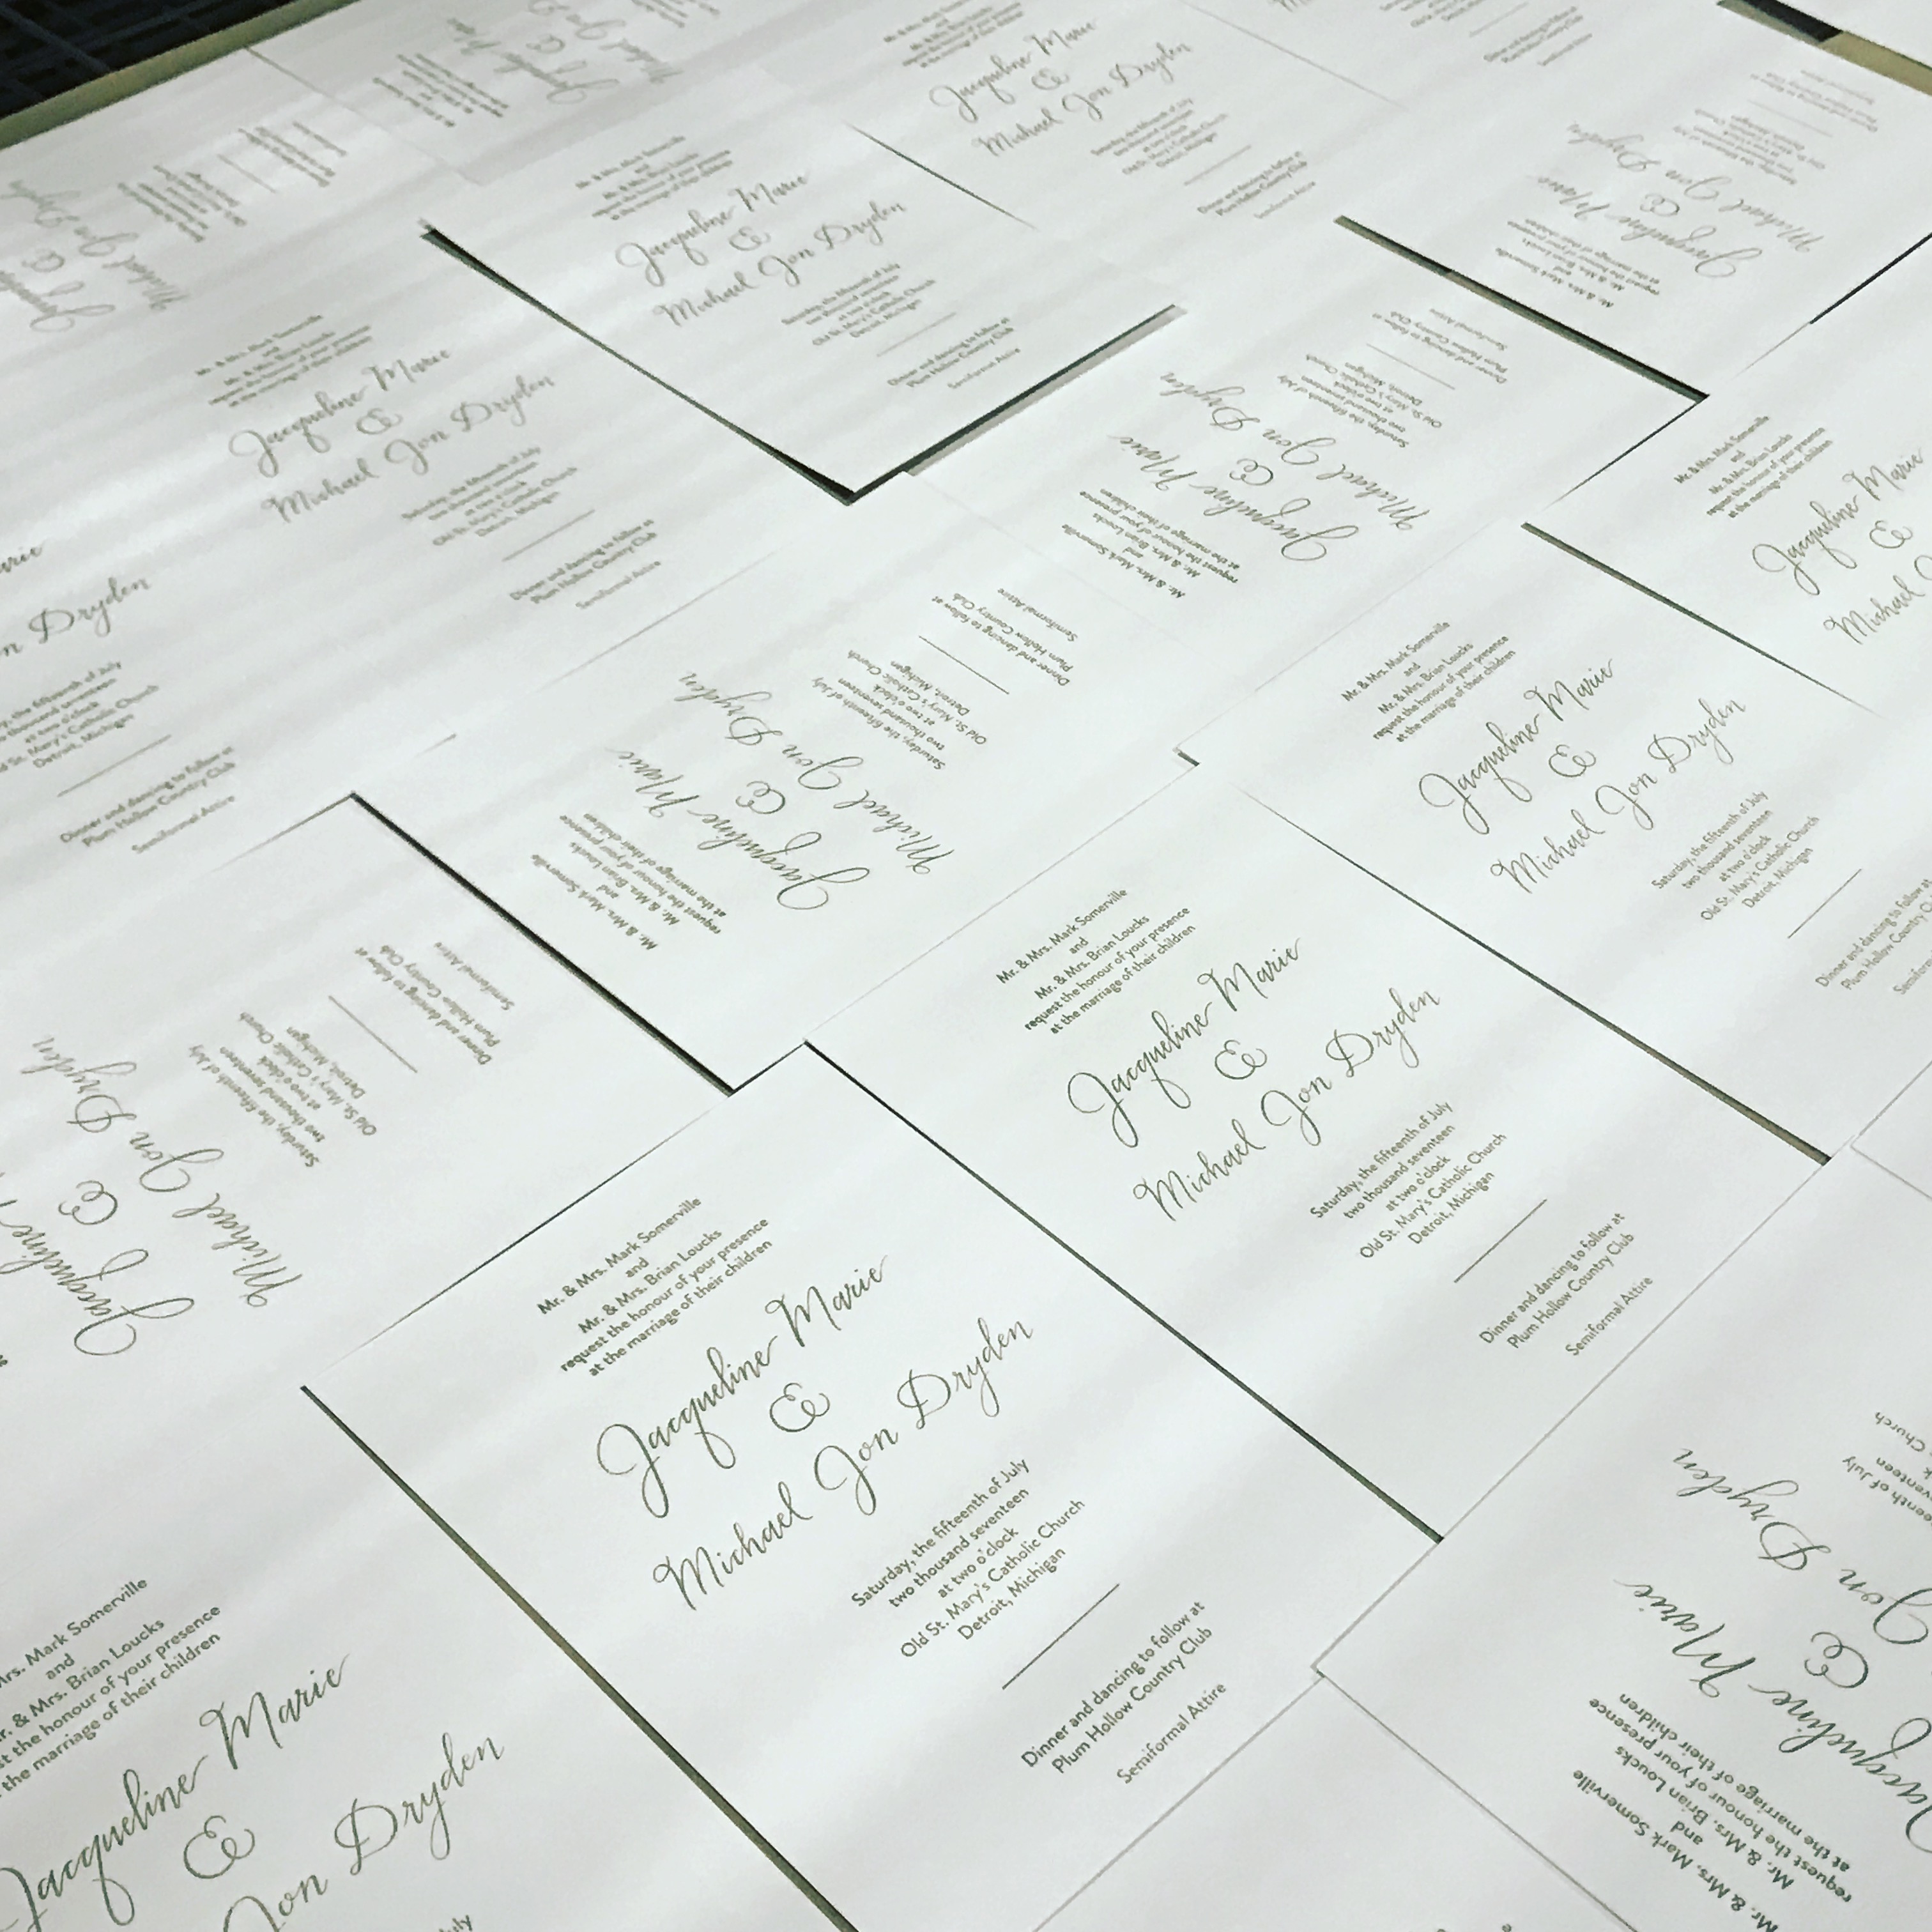 Mr. & Mrs. Mark Somerville
and
Mr. & Mrs. Brian Loucks
request the honour of your presence
at the marriage of their children
Jacqueline Marie
&
Michael Jon Dryden
Saturday, the fifteenth of July
two thousand seventeen
at two o'clock
Old St. Mary's Catholic Church
Detroit, Michigan
Dinner and dancing to follow at
Plum Hollow Country Club
Semiformal Attire